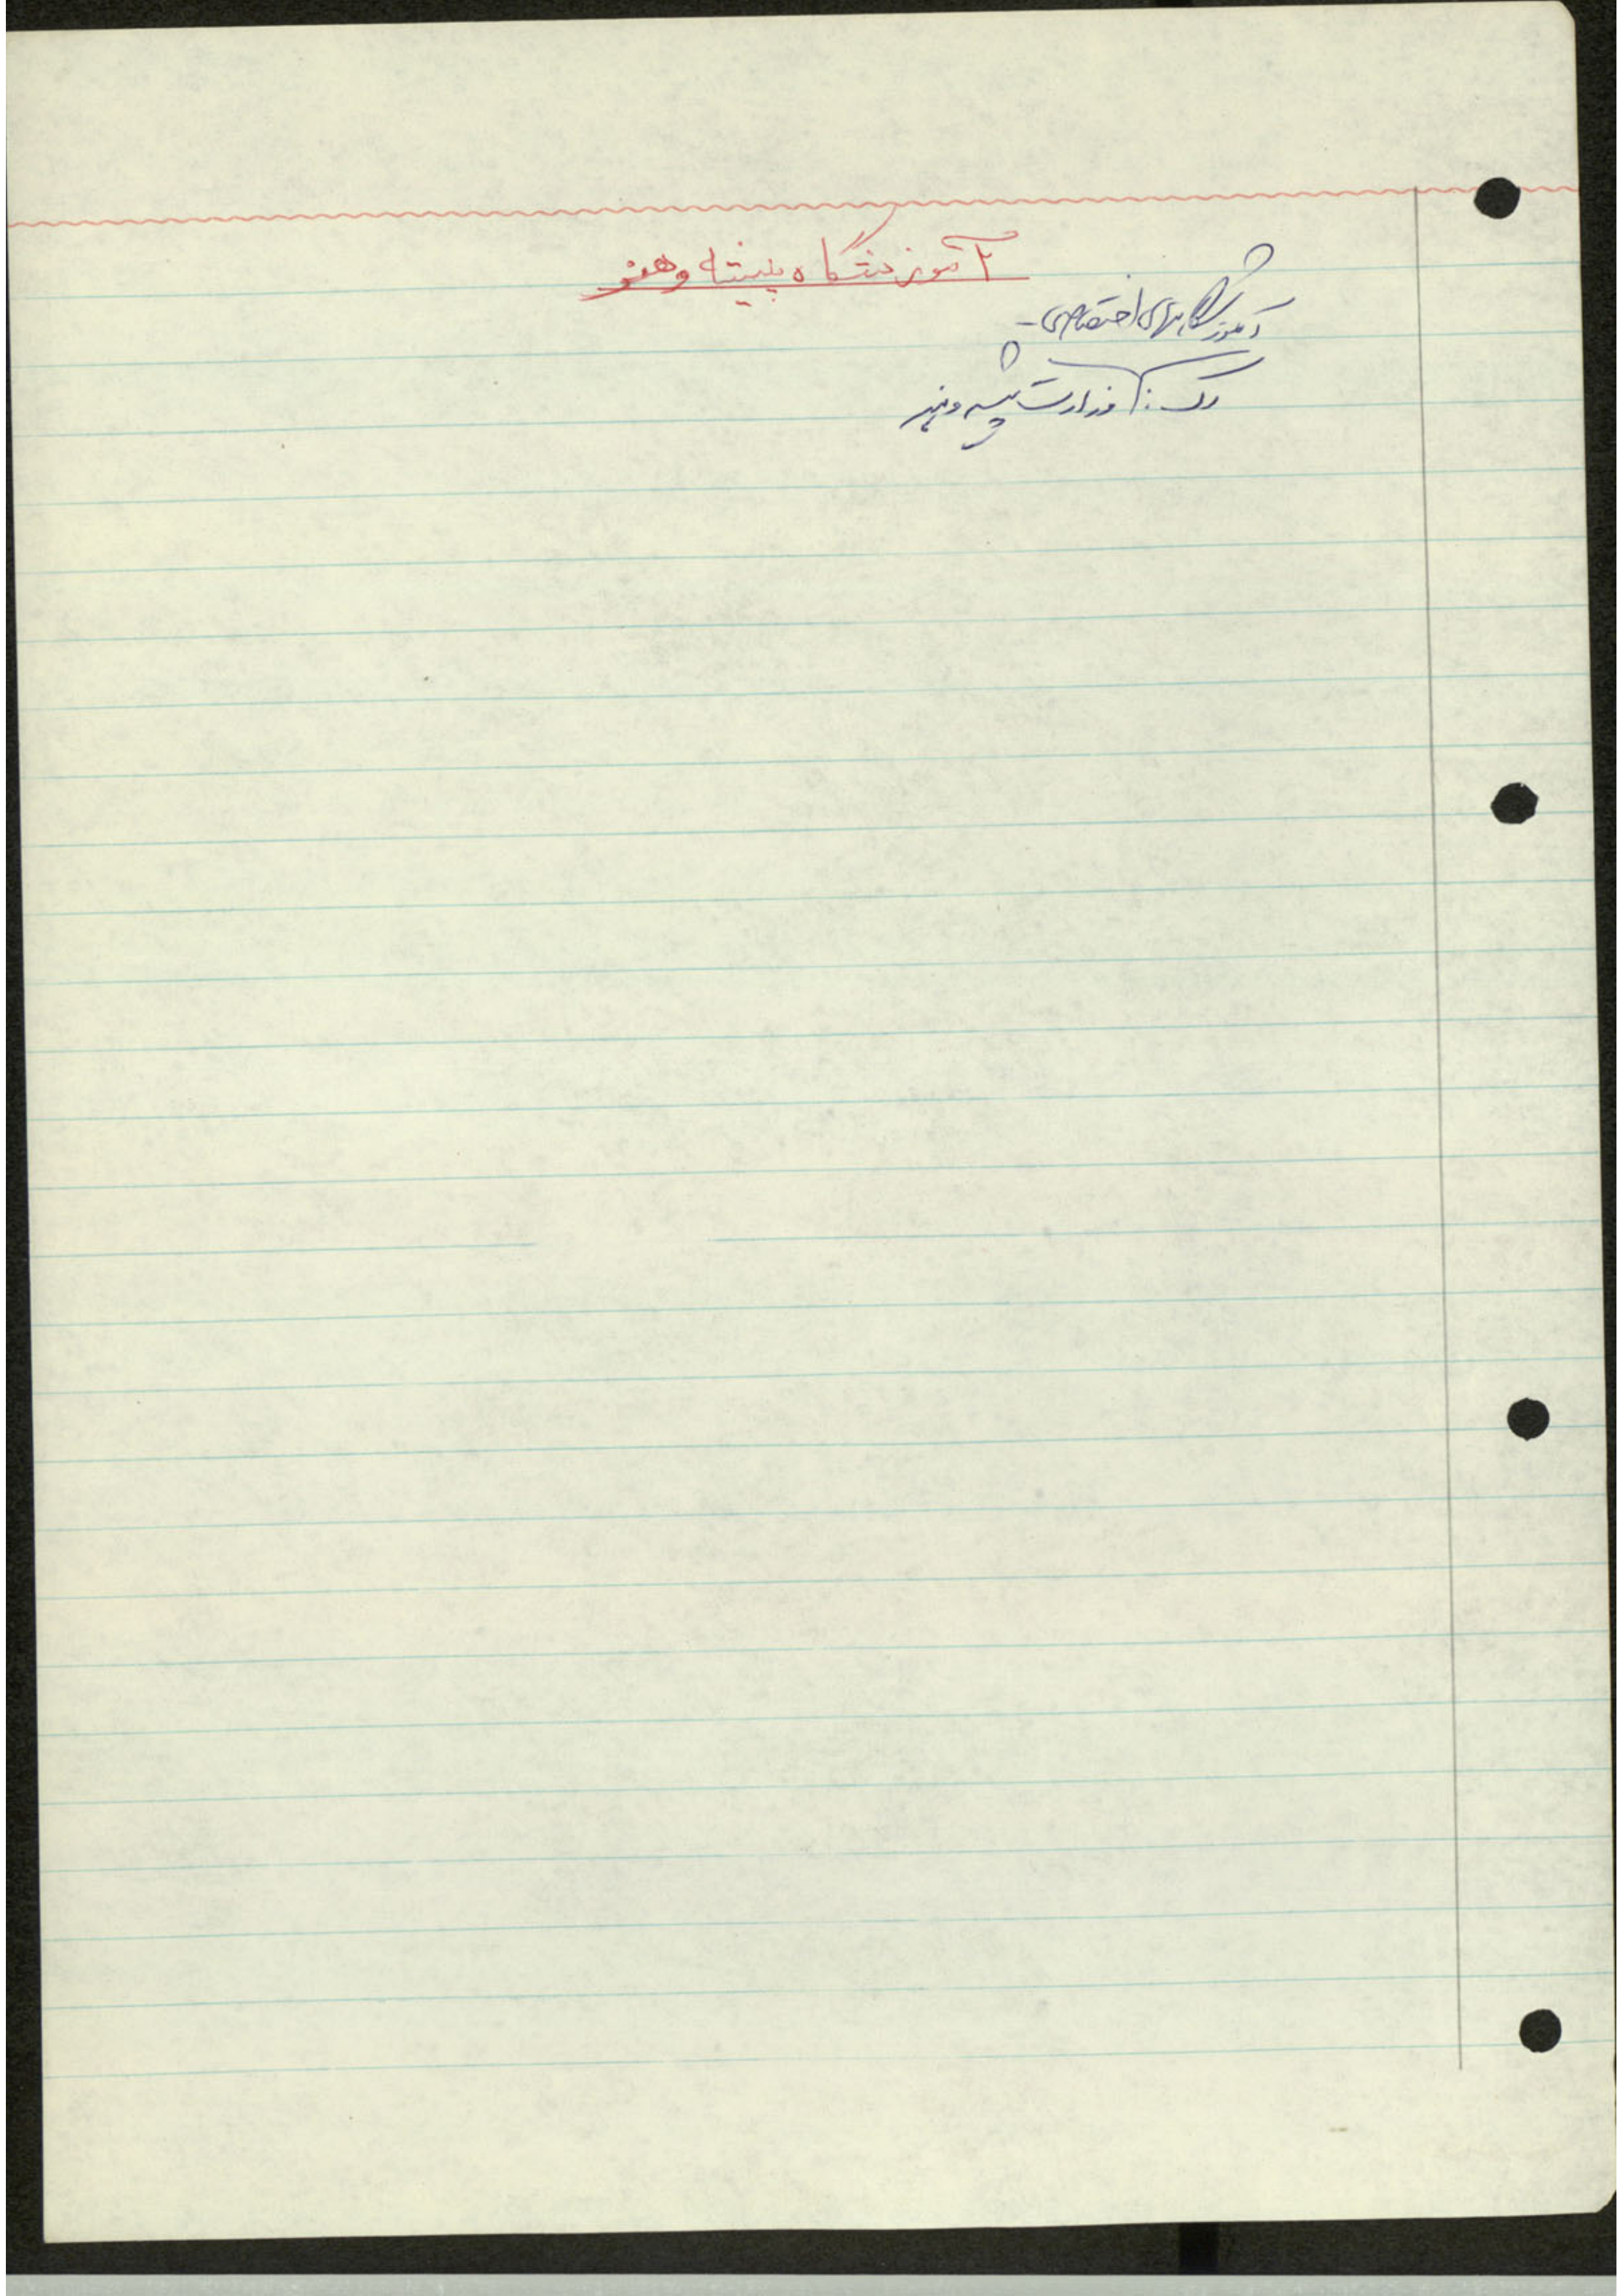 آموزشگاه پیشه و هنر
آموزشگاههای اختصاصی -
رک : وزارت پیشه و هنر